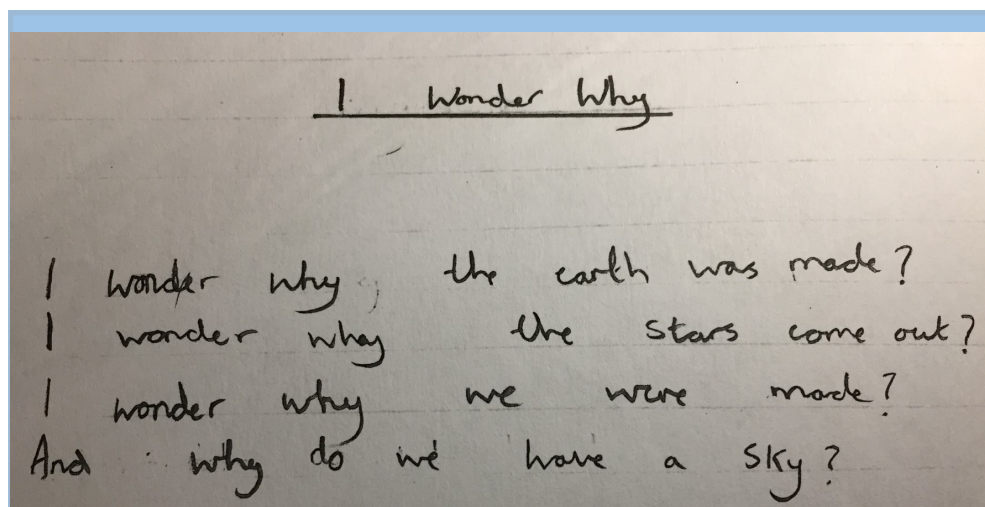 I Wonder Why
I wonder why, the earth was made?
I wonder why the stars come out?
I wonder why we were made?
And why do we have a sky?